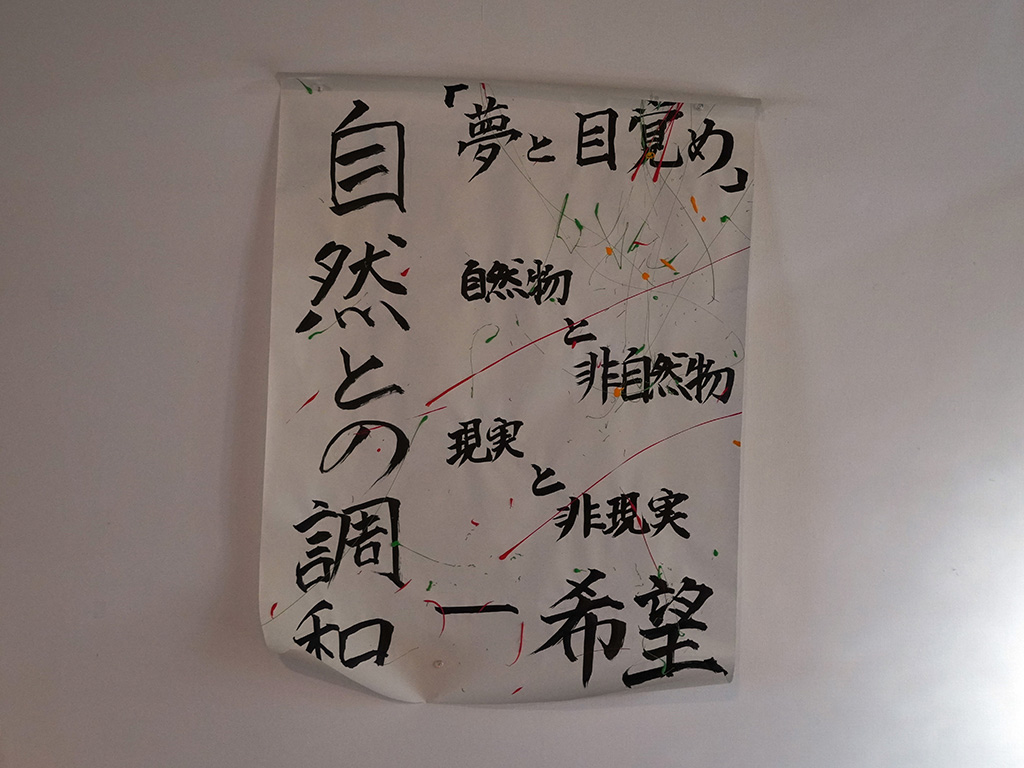 「夢と目覚め」
自然物
と
非自然物
現実
と
非現実
一希望
自然との調和